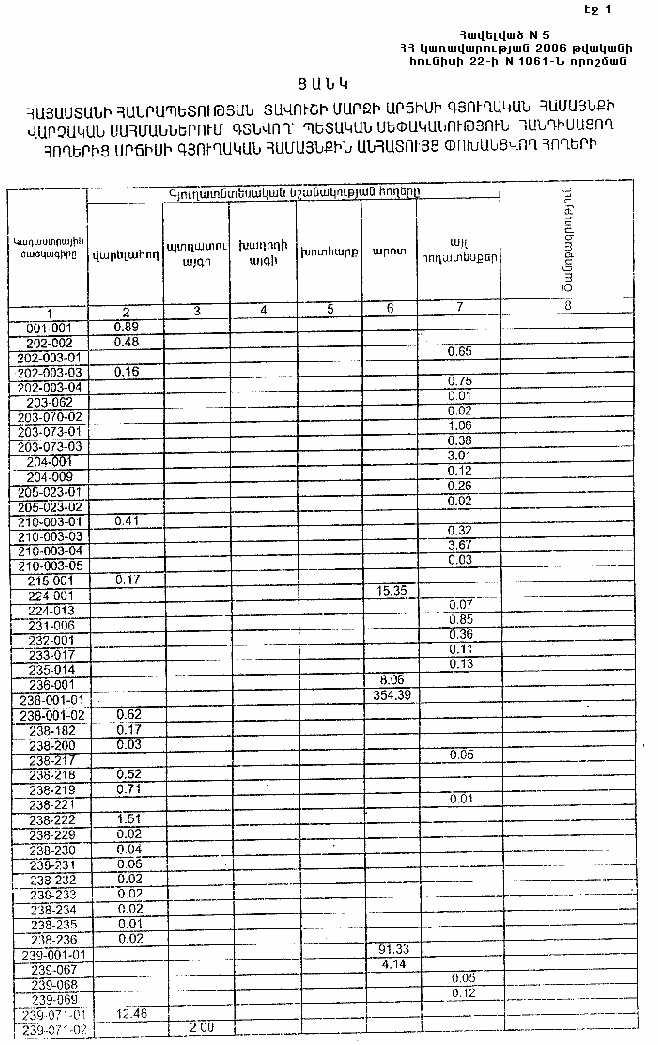 Էջ 1
Հավելված N 5
ՀՀ կառավարության 2006 թվականի
հունիսի 22-ի N 1061-Ն որոշման
ՑԱՆԿ
ՀԱՅԱՍՏԱՆԻ ՀԱՆՐԱՊԵՏՈՒԹՅԱՆ ՏԱՎՈՒՇԻ ՄԱՐԶԻ ԱՐՃԻՍԻ ԳՅՈՒՂԱԿԱՆ ՀԱՄԱՅՆՔԻ
ՎԱՐՉԱԿԱՆ ՍԱՀՄԱՆՆԵՐՈՒՄ ԳՏՆՎՈՂ՝ ՊԵՏԱԿԱՆ ՍԵՓԱԿԱՆՈՒԹՅՈՒՆ ՀԱՆԴԻՍԱՑՈՂ
ՀՈՂԵՐԻՑ ԱՐՃԻՍԻ ԳՅՈՒՂԱԿԱՆ ՀԱՄԱՅՆՔԻՆ ԱՆՀԱՏՈՒՅՑ ՓՈԽԱՆՑՎՈՂ ՀՈՂԵՐԻ
Գյուղատնտեսական նշանակության հողերը
Կադաստրային ծածկագիրը վարելահող պտղատու այգի խաղողի այգի խոտհարք արոտ այլ հողատեսքեր
1 2 3 4 5 6 7 8
001-001 0.89
202-002 0.48
202-003-01 0.65
202-003-03 0.16
202-003-04 0.75
203-062 0.01
203-070-02 0.02
203-073-01 1.06
203-073-03 0.38
204-001 3.01
204-009 0.12
205-023-01 0.26
205-023-02 0.02
210-003-01 0.41
210-003-03 0.32
210-003-04 3.67
210-003-05 0.03
215-001 0.17
224-001 15.35
224-013 0.07
231-006 0.85
232-001 0.36
233-017 0.11
235-014 0.13
236-001 8.06
238-001-01 354.39
238-001-02 0.62
238-182 0.17
238-200 0.03
238-217 0.05
238-218 0.52
238-219 0.71
238-221 0.01
238-222 1.51
238-229 0.02
238-230 0.04
238-231 0.06
238-232 0.02
238-233 0.02
238-234 0.02
238-235 0.01
238-236 0.02
239-001-01 91.33
239-067 4.14
239-068 0.05
239-069 0.12
239-071-01 12.46
239-071-02 2.00